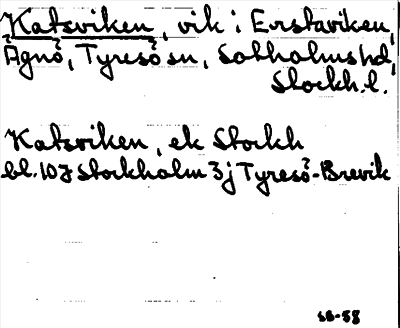 Katsviken, vik i Erstaviken,
Ägnö, Tyresö sn, Sotholms hd,
Stockh. l.
Katsviken, ek Stockh
bl. 107 Stockholm 3j Tyresö-Brevik
SB-58